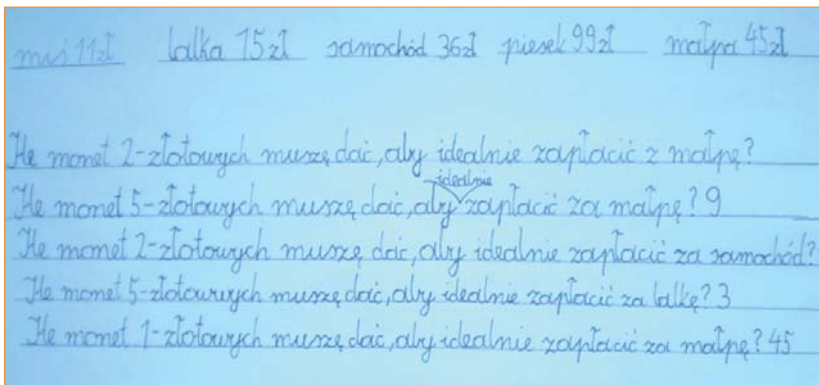 miś 11zł lalka 15zł samochód 36zł piesek 99zł małpa 45zł
Ile monet 2-złotowych muszę dać, aby idealnie zapłacić z małpę?
idealnie
Ile monet 5-złotowych muszę dać, aby zapłacić za małpę? 9
Ile monet 2-złotowych muszę dać, aby idealnie zapłacić za samochód?
Ile monet 5-złotowych muszę dać, aby idealnie zapłacić za lalkę? 3
Ile monet 1-złotowych muszę dać, aby idealnie zapłacić za małpę? 45